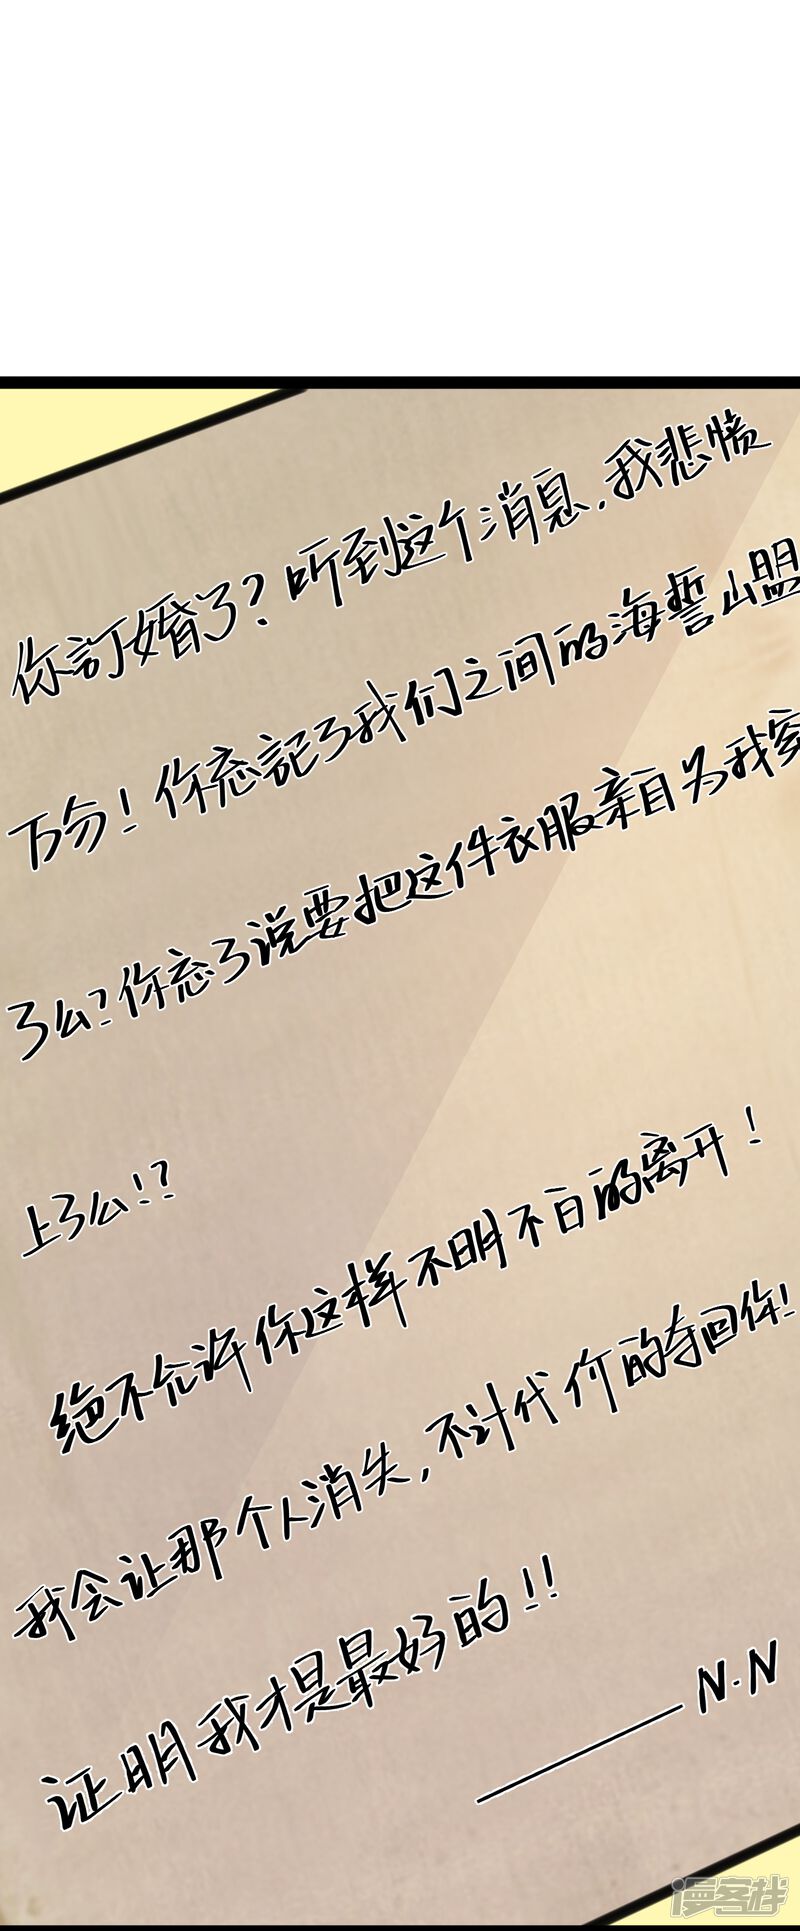 你訂婚了?听到这个消息,我悲愤
万分!你忘記了我们之间的海誓山盟
了么?你忘了说要把这件衣服亲自为我穿
上了么!?
绝不允许你这样不明不白的离开!
我会让那个人消失,不计代价的夺回你!
证明我才是最好的!!
——N.N
漫客栈